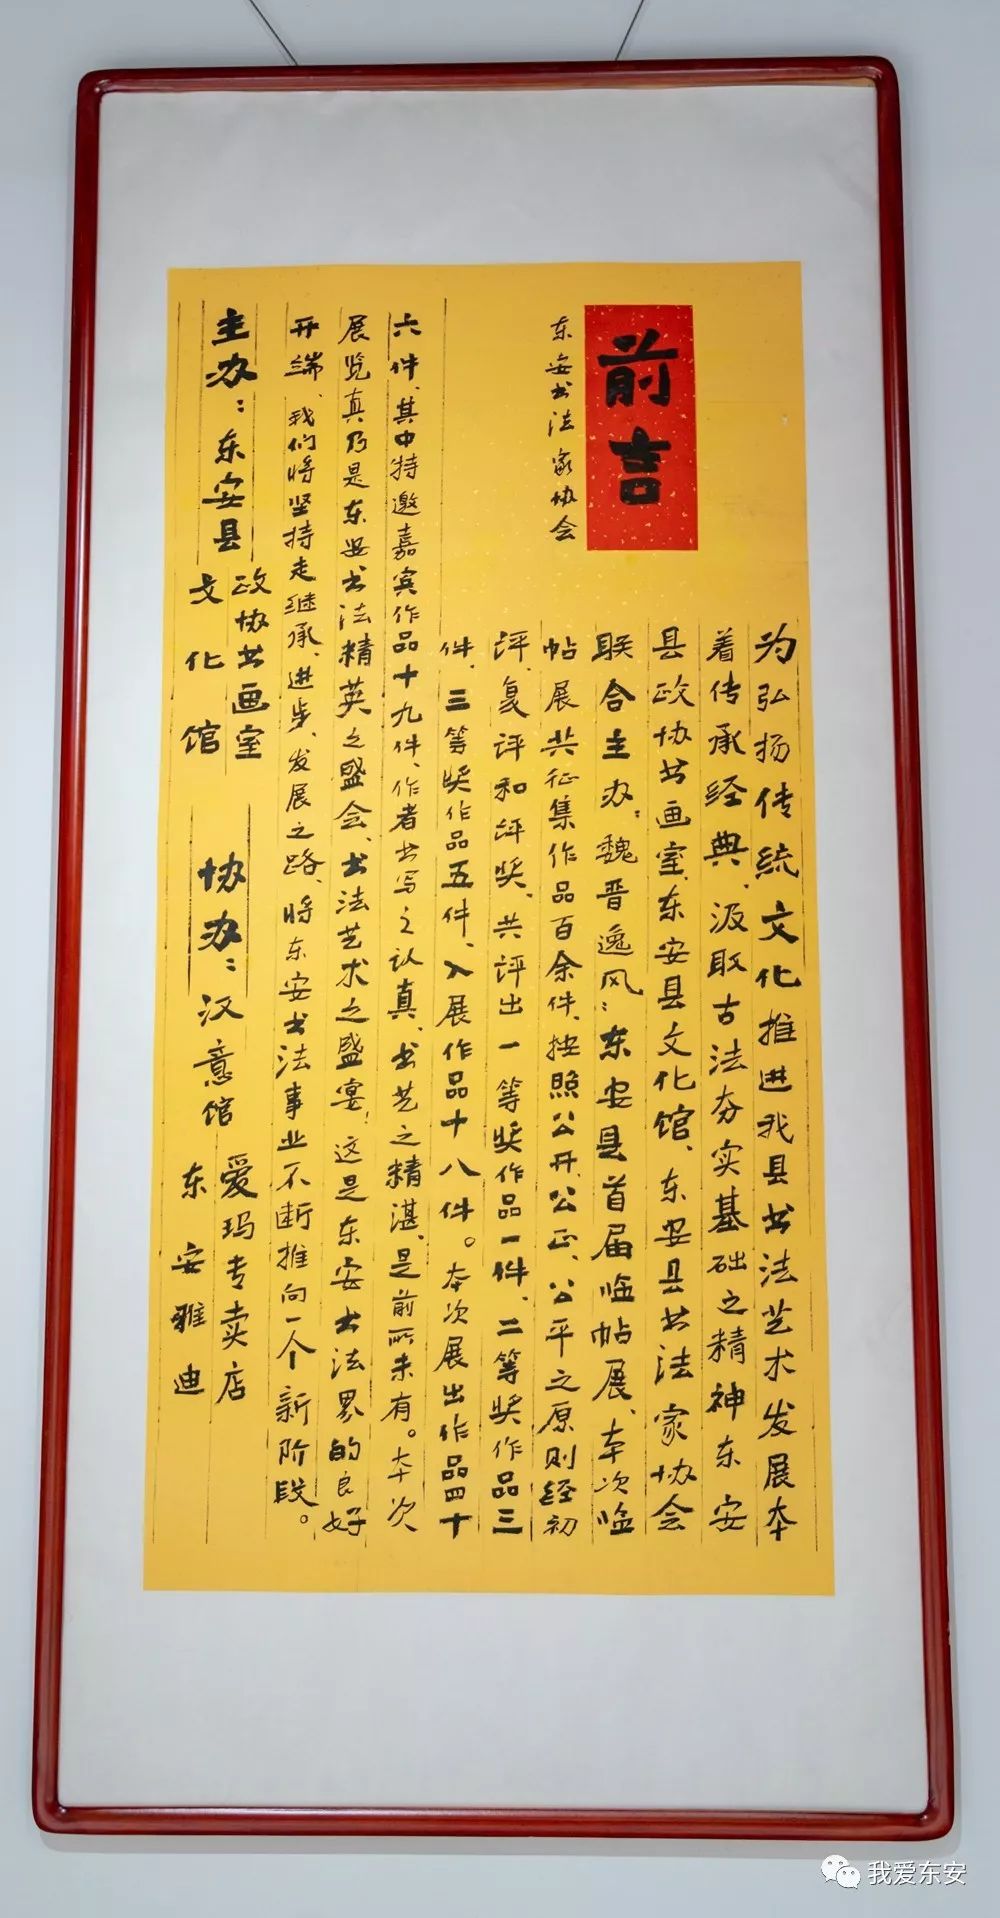 前言
东安书法家协会
为弘扬传统文化推进我县书法艺术发展本
着传承经典、汲取古法夯实基础之精神东安
县政协书画室、东安县文化馆、东安县书法家协会
联合主办：魏晋逸风：东安县首届临帖展、本次临
帖展共征集作品百余件、按照公开、公正、公平之原则经初
评、复评和评奖、共评出一等奖作品一件、二等奖作品三
件、三等奖作品五件、入展作品十八件。本次展出作品四十
六件、其中特邀嘉宾作品十九件、作者书写之认真、书艺之精湛、是前所未有。本次
展览真乃是东安书法精英之盛会、书法艺术之盛宴、这是东安书法界的良好
开端、我们将坚持走继承、进步、发展之路、将东安书法事业不断推向一个新阶段。
主办：东安县
政协书画室
文化馆
协办：汉意馆
爱玛专卖店
东安雅迪
我爱东安